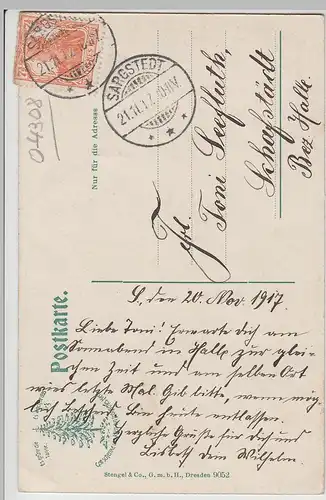 SARGSTEDT
21.11.17.
SARGSTEDT
21.11.17.
04908
Nur für die Adresse
Frl.
Toni
Schafstädt
Bez Halle.
Postkarte.
S, den 20. Nov. 1917
Liebe Toni! Erwarte dich am
Sonnabend in Halle zur glei-
chen Zeit und am selben Ort
wie letzte Mal. Gib bitte, wenn mög-
lich Bescheid. Bin heute entlassen.
Herzliche Grüße für dich und
Lisbeth dein Wilhelm.
Stengel & Co., G. m. b. H., Dresden 9052